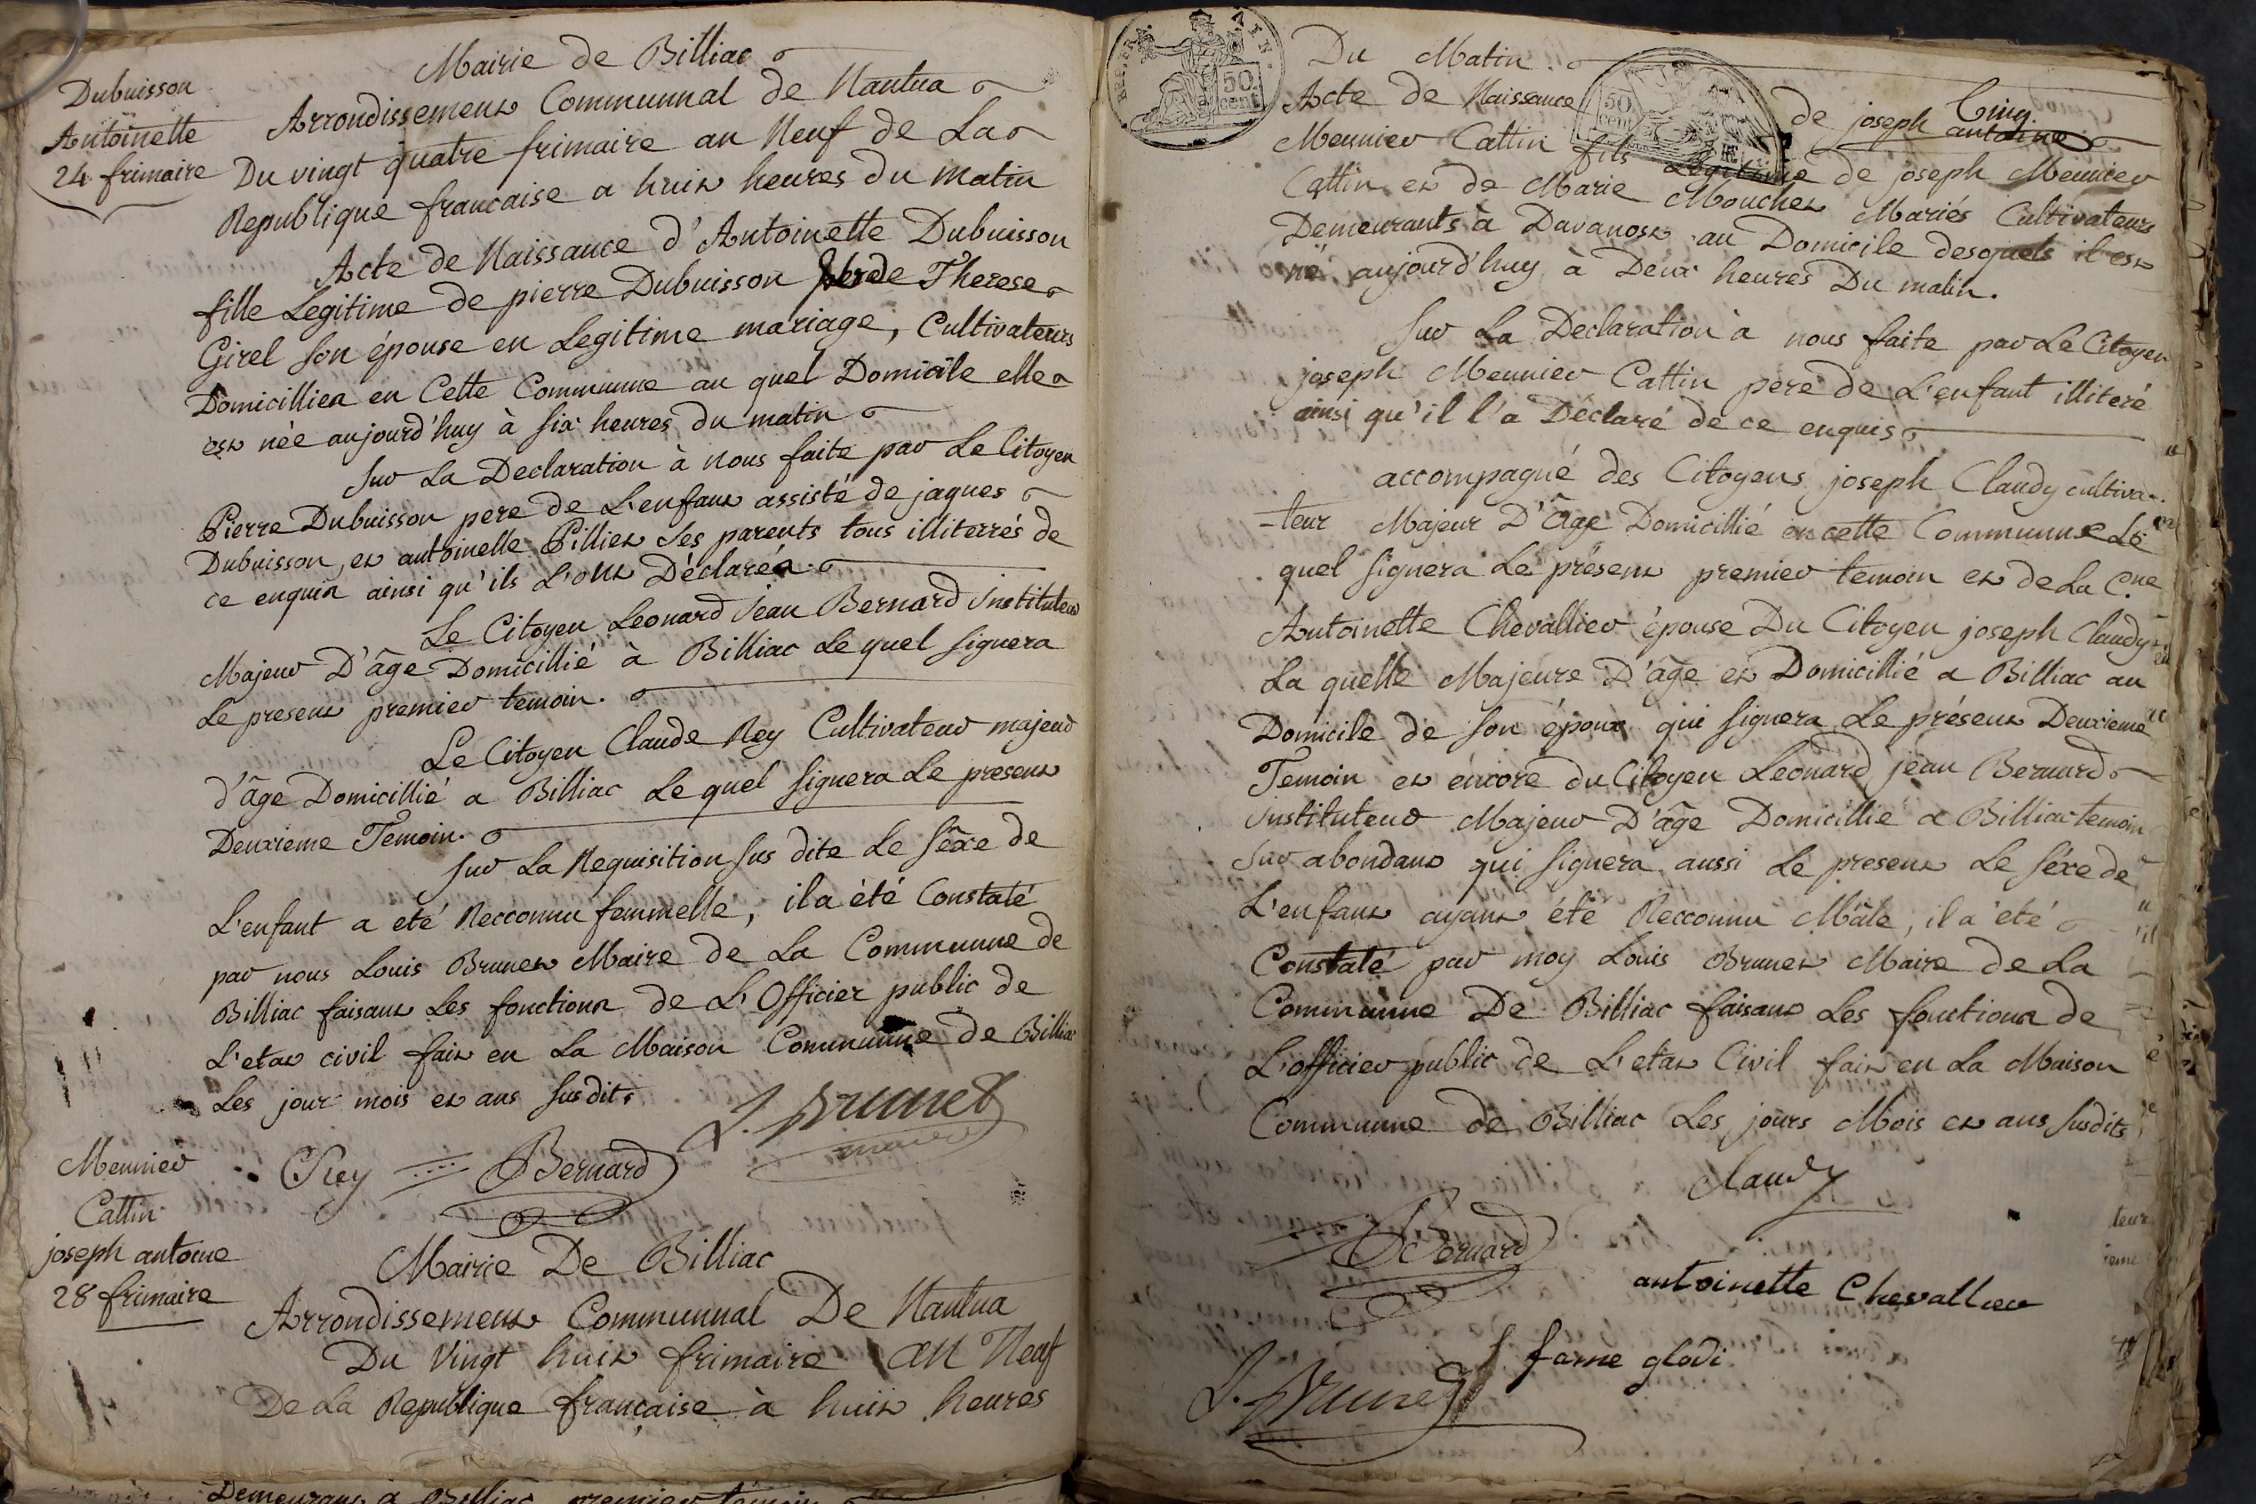 Dubuisson
Antoinette
24 frimaire
Mairie de Billiac
Arrondissement Communnal de Nantua
Du vingt quatre frimaire an Neuf de La
Republique francaise a huit heures du matin
Acte de Naissance d'Antoinette Dubuisson
fille Legitime de pierre Dubuisson et de Therese
Girel son épouse en Legitime mariage, Cultivateurs
Domicilliés en Cette Communne au quel Domicile elle
est née aujourd'huy à six heures du matin
Sur La Declaration à nous faite par Le Citoyen
Pierre Dubuisson pere de L'enfant assisté de jaques
Dubuisson, et antoinelle Pilliet Ses parents tous illiterrés de
ce enquis ainsi qu'ils L'ont Déclarés
Le Citoyen Leonard jean Bernard instituteur
Majeur D'âge Domicillié à Billiac Le quel signera
Le present premier temoin.
Le Citoyen Claude Rey Cultivateur majeur
d'âge Domicillié a Billiac Le quel signera Le present
Deuxieme Temoin.
Sur La Requisition sus dite Le sêxe de
L'enfant a eté Recconnu femmelle, il a été Constaté
par nous Louis Brunet Maire de La Communne de
Billiac faisant Les fonctions de L'Officier public de
L'etat civil fait en La Maison Communne de Billiac
Les jour mois et ans susdits
L. Brunet
maire
CRey Bernard
Meunier
Cattin
joseph antoine
28 frimaire
Mairie De Billiac
Arrondissement Communnal De Nantua
Du Vingt huit frimaire an Neuf
De La Republique française à huit heures
Demeurant a Billiac premier témoin
50
cent
50
cent
Du Matin.
Acte de Naissance de joseph antoine
Cinq
Meunier Cattin fils Légitime de joseph Meunier
Cattin et de Marie Mouchet Mariés Cultivateurs
Demeurants à Davanost au Domicile desquels il est
né aujourd'huy à Deux heures Du matin.
Sur La Declaration à nous faite par Le Citoyen
joseph Meunier Cattin pere de L'enfant illiteré
ainsi qu'il l'a Déclaré de ce enquis
accompagné des Citoyens joseph Claudy cultiva-
-teur Majeur D'âge Domicillié en cette Communne Le
quel signera Le présent premier temoin et de La C.ne
Antoinette Chevallier épouse Du Citoyen joseph Claudy
La quelle Majeure D'âge et Domicillié a Billiac au
Domicile de son époux qui signera Le présent Deuxieme
Temoin et encore du Citoyen Leonard jean Bernard
instituteur Majeur D'âge Domicillié a Billiac temoin
Sur abondant qui signera aussi Le present Le séxe de
L'enfant ayant été Recconnu Mâle, il a été
Constaté par moy Louis Brunet Maire de La
Communne De Billiac faisant Les fonctions de
L'officier public de L'etat Civil fait en La Maison
Communne de Billiac Les jours Mois et ans susdits
Claudy
Bernard
antoinette Chevallier
fame glodi
L. Brunet